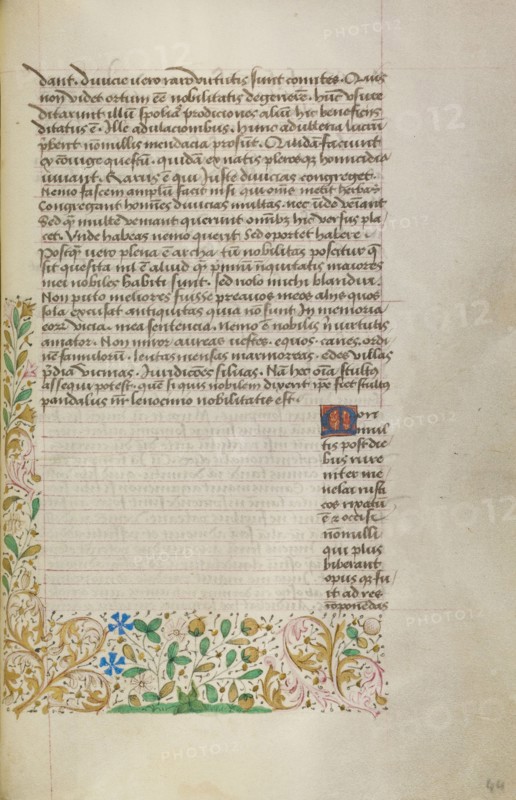 dant. diuicie uero raro uirtutis sunt comites. Quis
non videt ortum eē nobilitatis degenerē. hūc vsure
ditarunt illū spolia prodiciones aliū hic beneficiis
ditatus ē. Ille adulacionibus. hunc adulteria lucrū
p̄bent nōnullis mendacia prosūt. Quidā faciunt
ex cōiuge questū. quidā ex natis plerosq̄ homicidia
iuuant. Rarus ē qui iuste diuicias congreget.
Nemo fascem amplū facit nisi qui om̄es metit herbas
Congregant hom̄es diuicias multas. nec vn̄ veniant
Sed q̄ multe veniant querunt om̄ibȝ hic versus pla/
cet. Vnde habeas nemo querit Sed oportet habere.
Postq̄ vero plena ē archa tū nobilitas poscitur q̄
sic quesita nil ē aliud q̄ p̄miū iniquitatis maiores
mei nobiles habiti sunt. sed nolo michi blandiri.
Non puto meliores fuisse preauos meos aliis quos
sola excusat antiquitas quia nō sunt in memoria
eorȝ vicia. mea sentencia. nemo ē nobilis n̄ uirtutis
amator. Non miror aureas vestes. equos. canes. ordi
nē famulorū. lautas mensas marmoreas. edes villas
p̄dia piscinas. Iuridicões siluas. Nā hec om̄ia stultus
assequi potest. quē si quis nobilem dixerit ip̄e fiet stultus
pandalus n̄r lenocinio nobilitatis est.
Non
mul
tis post die
bus rure
niter me
nelai rusti
cos rixatū
ē ⁊ occisi
nōnulli
qui plus
biberant
opus q̄ fu/
it ad res
cōponēdas
44
PHOTO12